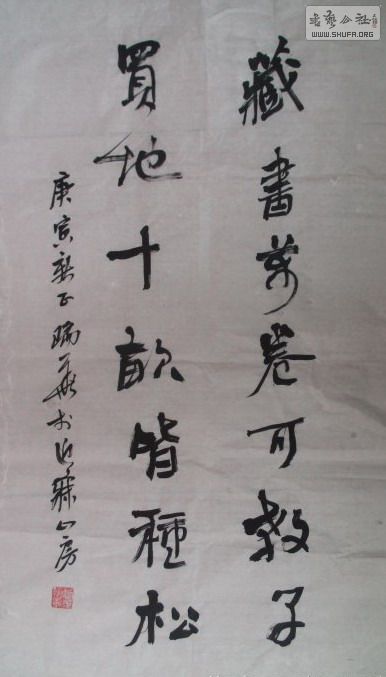 藏書萬卷可教子
買地十畝皆種松
庚寅新正瑞華於
山房
書藝公社
WWW.SHUFA.ORG